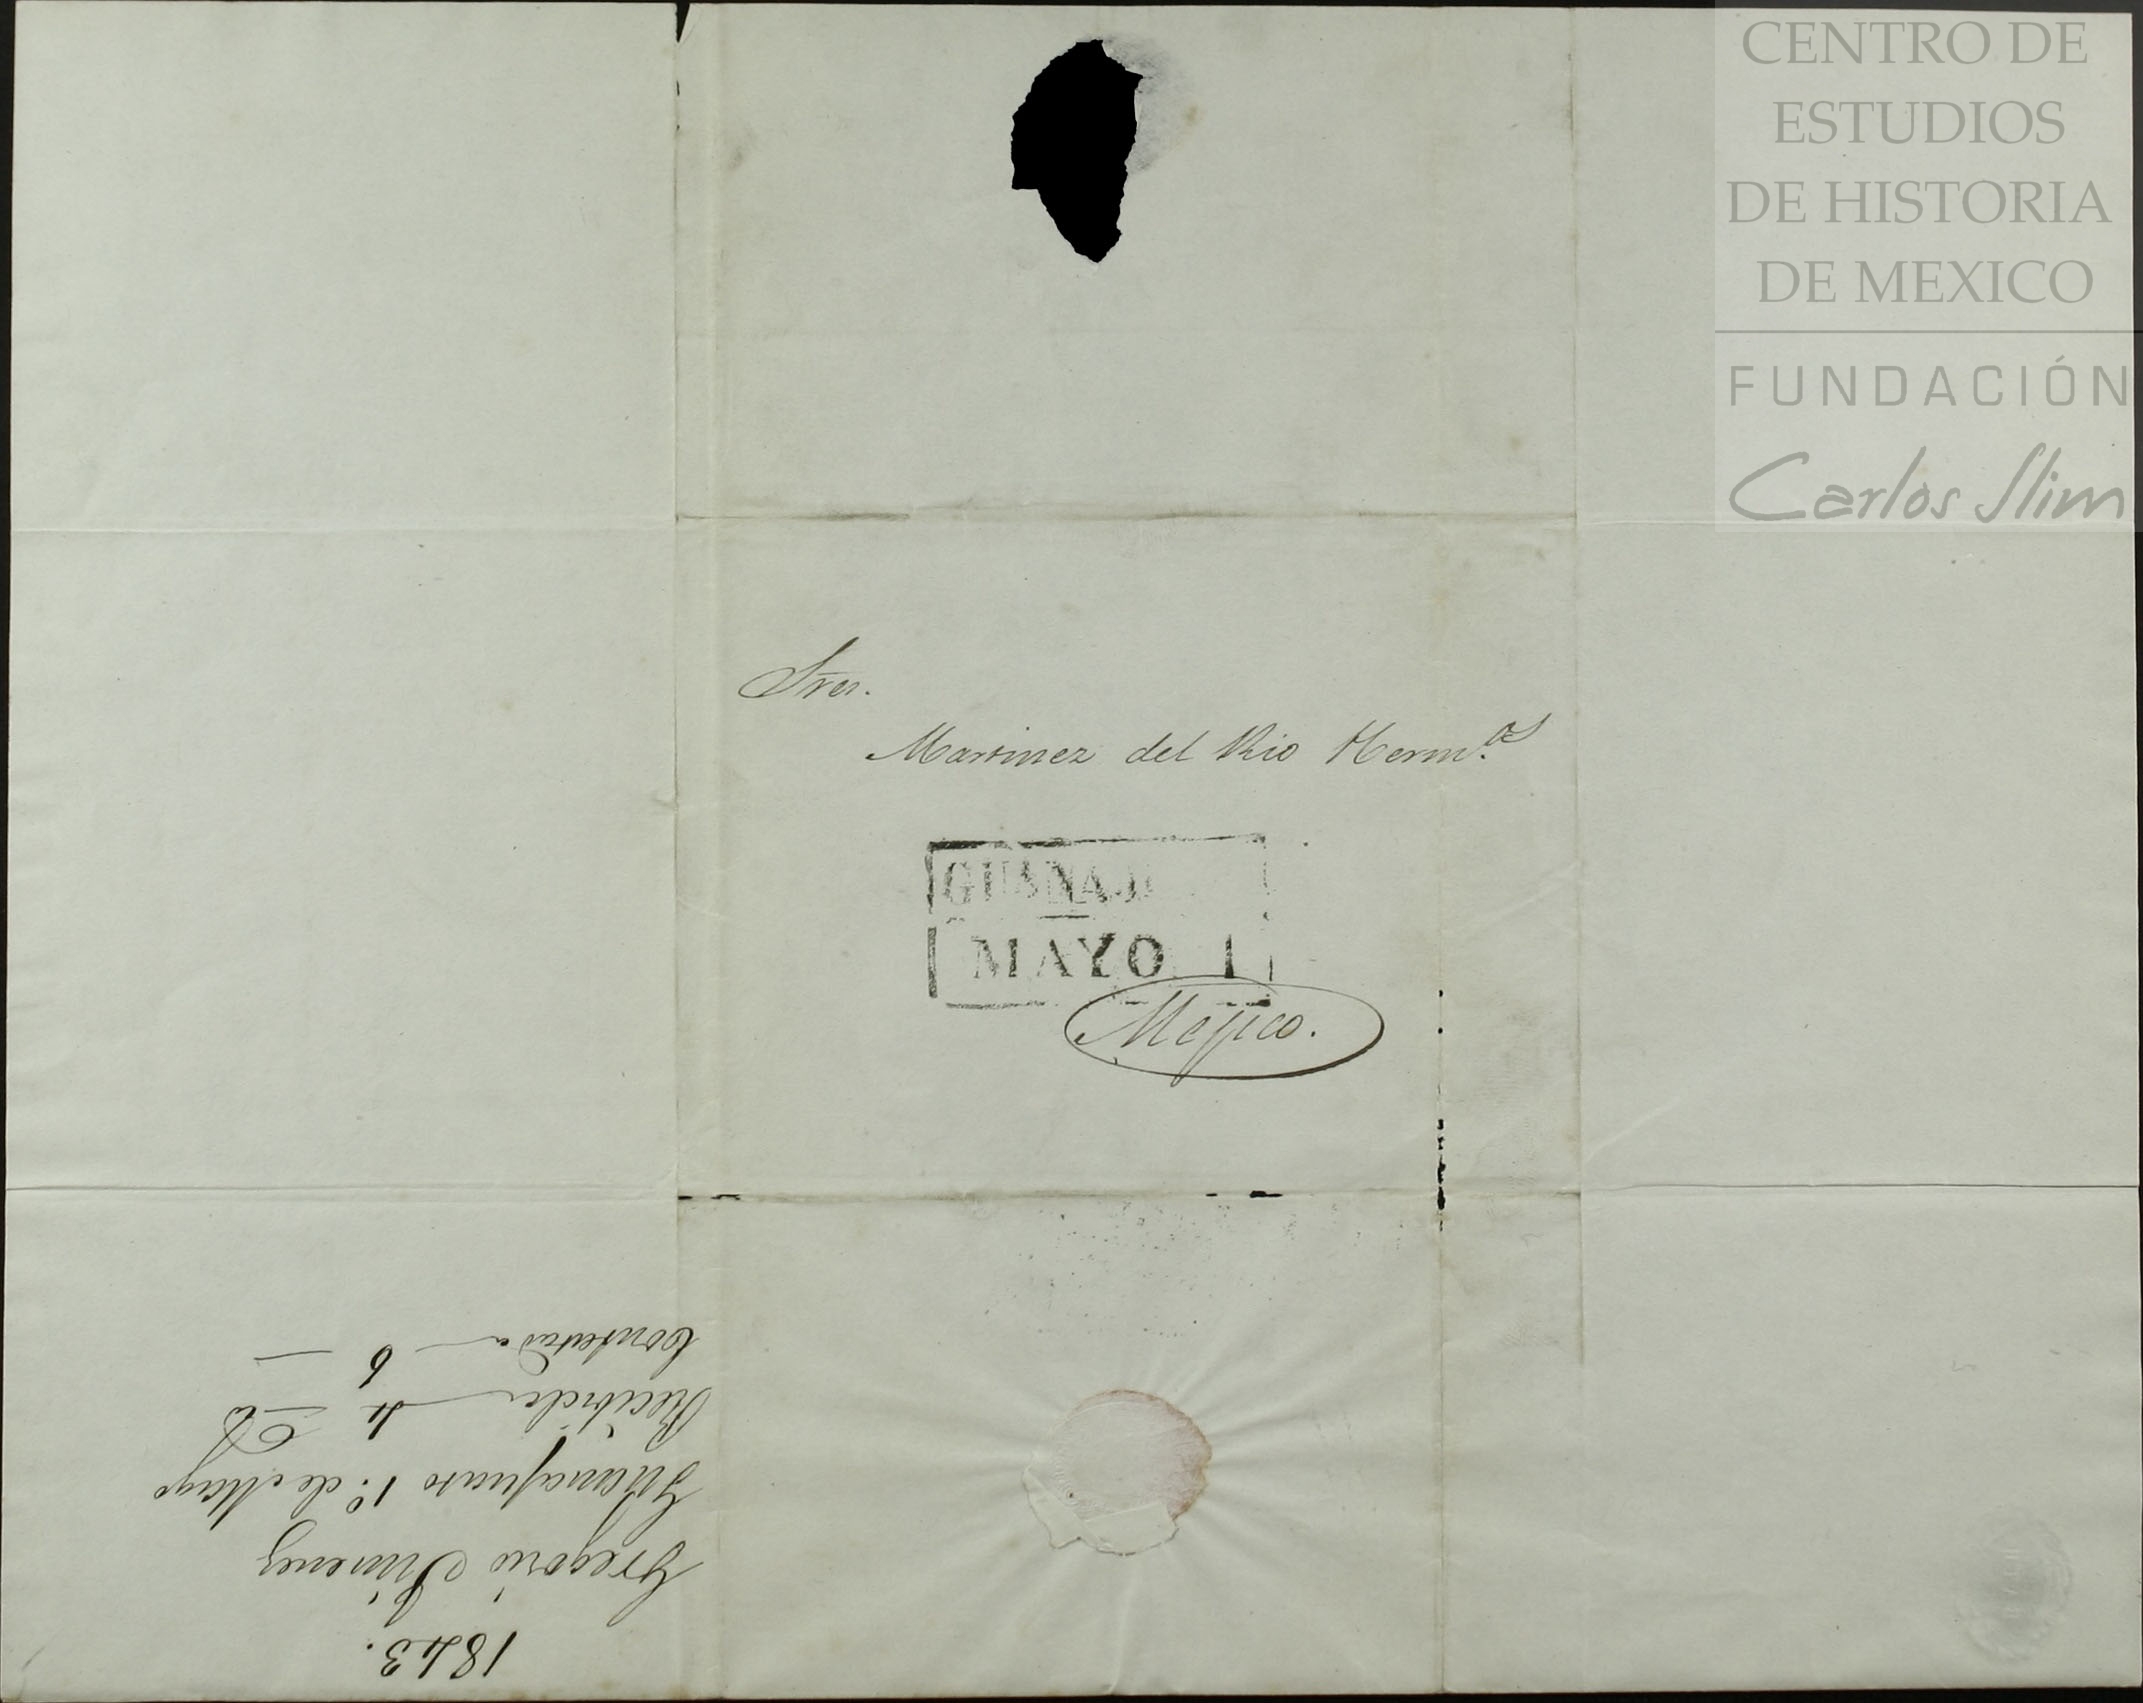 CENTRO DE
ESTUDIOS
DE HISTORIA
DE MEXICO
FUNDACIÓN
Carlos Slim
Sres.
Martinez del Rio Herm.os
GUANAJ
MAYO 1
Mejico.
1843.
Gregorio Jimenez
Guanajuato 1º. de Mayo
Recibida 4
Contestada 6